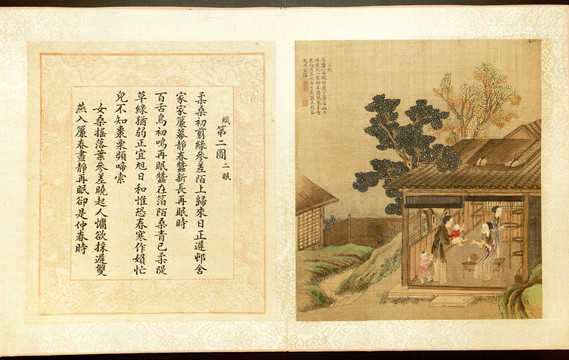 織 第二圖 二眠
柔桑初剪綠參差陌上歸來日正遲邨舍
家家簾幕靜春蠶新長再眠時
百舌鳥初鳴再眠蠶在箔陌桑青已柔隄
草綠猶弱正宜旭日和惟恐春寒作娘忙
兒不知棗栗頻啼索
女桑搖落葉參差曉起人慵欲採遲雙
燕入簾春晝靜再眠卻是仲春時
二眠